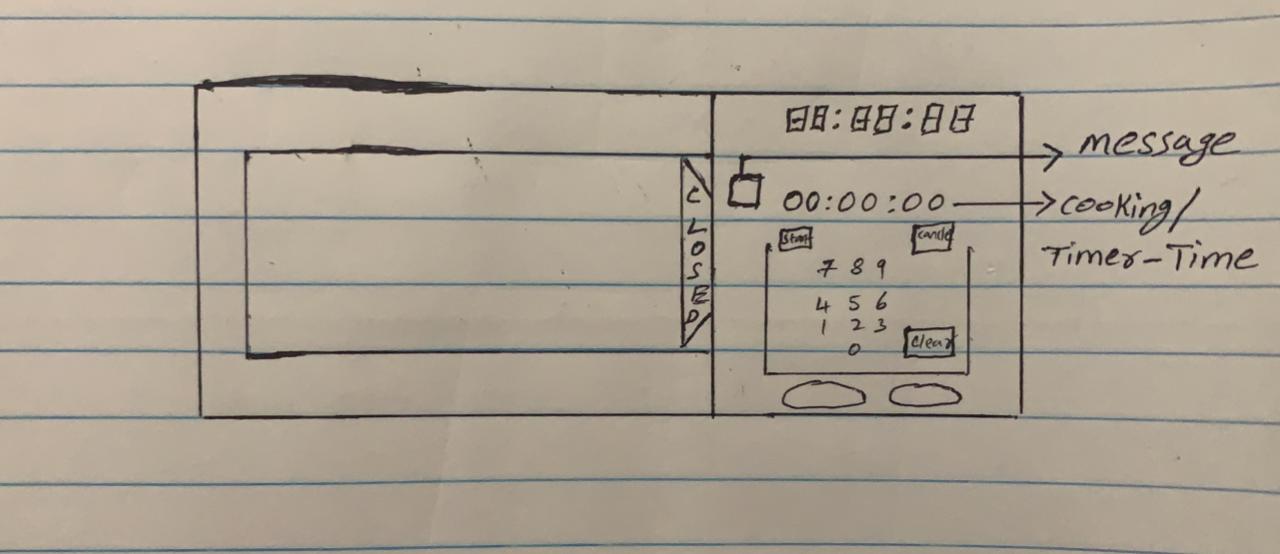 88:88:88
message
00:00:00
cooking/
Timer-Time
CLOSED
Start
Cancle
7 8 9
4 5 6
1 2 3
0
Clear